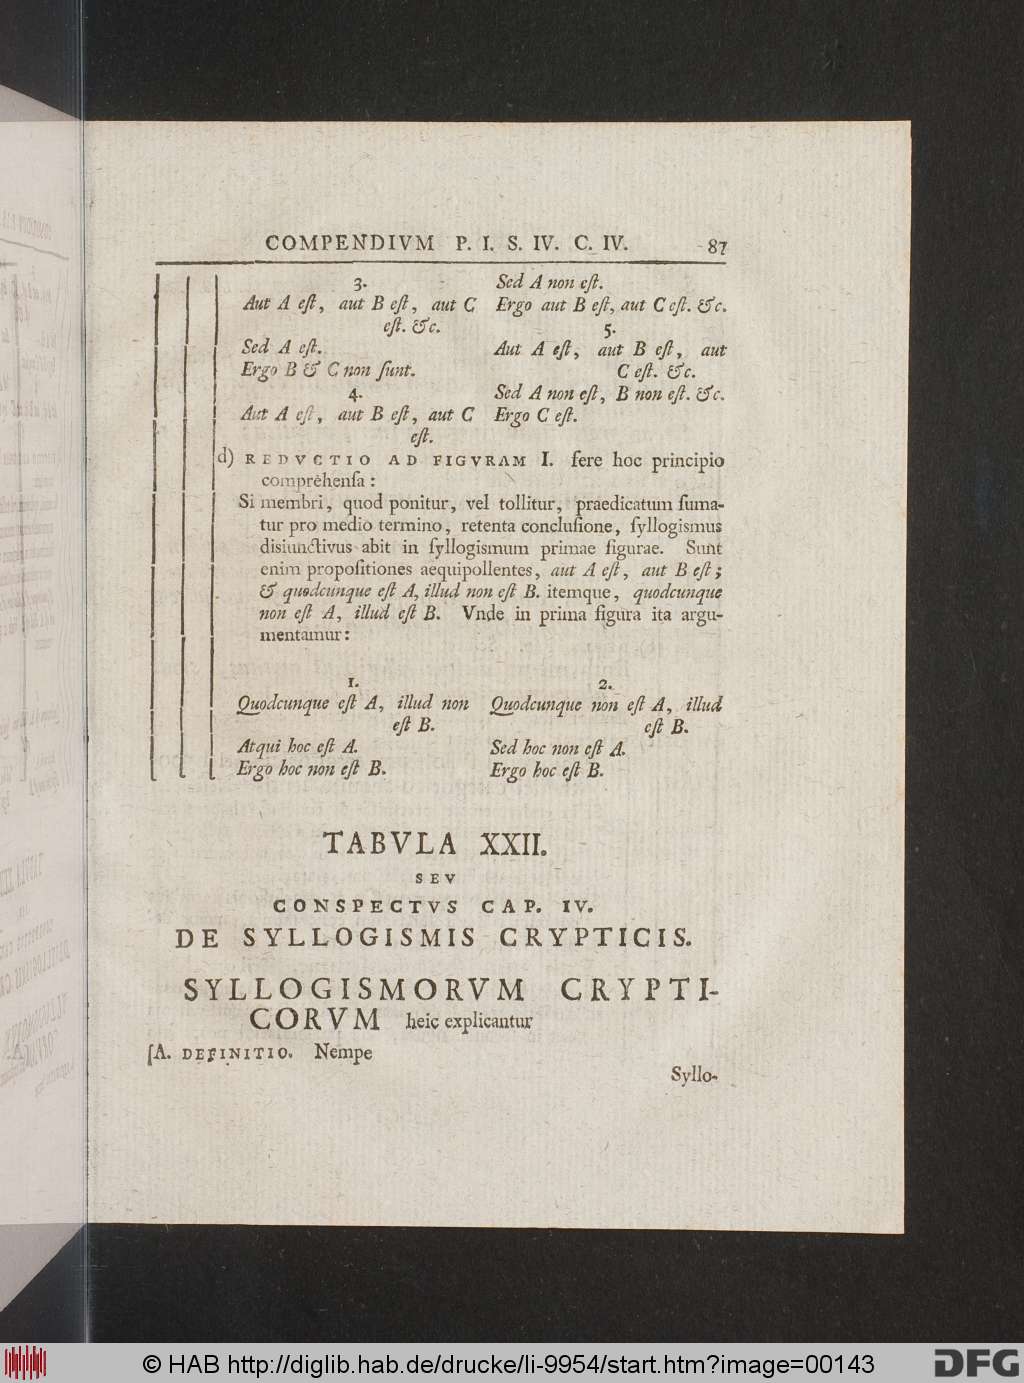 COMPENDIVM P. I. S. IV. C. IV. 87
3.
Aut A eſt, aut B eſt, aut C
eſt. &c.
Sed A eſt.
Ergo B & C non ſunt.
4.
Aut A eſt, aut B eſt, aut C
eſt.
Sed A non eſt.
Ergo aut B eſt, aut C eſt. &c.
5.
Aut A eſt, aut B eſt, aut
C eſt. &c.
Sed A non eſt, B non eſt. &c.
Ergo C eſt.
d) REDVCTIO AD FIGVRAM I. fere hoc principio
comprêhenſa:
Si membri, quod ponitur, vel tollitur, praedicatum ſuma-
tur pro medio termino, retenta concluſione, ſyllogismus
disiunctivus abit in ſyllogismum primae figurae. Sunt
enim propoſitiones aequipollentes, aut A eſt, aut B eſt;
& quodcunque eſt A, illud non eſt B. itemque, quodcunque
non eſt A, illud eſt B. Vnde in prima figura ita argu-
mentamur:
1.
Quodcunque eſt A, illud non
eſt B.
Atqui hoc eſt A.
Ergo hoc non eſt B.
2.
Quodcunque non eſt A, illud
eſt B.
Sed hoc non eſt A.
Ergo hoc eſt B.
TABVLA XXII.
SEV
CONSPECTVS CAP. IV.
DE SYLLOGISMIS CRYPTICIS.
SYLLOGISMORVM CRYPTI-
CORVM heic explicantur
A. DEFINITIO. Nempe
Syllo-
© HAB http://diglib.hab.de/drucke/li-9954/start.htm?image=00143
DFG